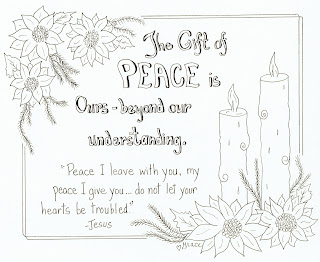 The Gift of
PEACE is
Ours - beyond our
understanding.
"Peace I leave with you, my
peace I give you... do not let your
hearts be troubled"
-Jesus
♡Grace